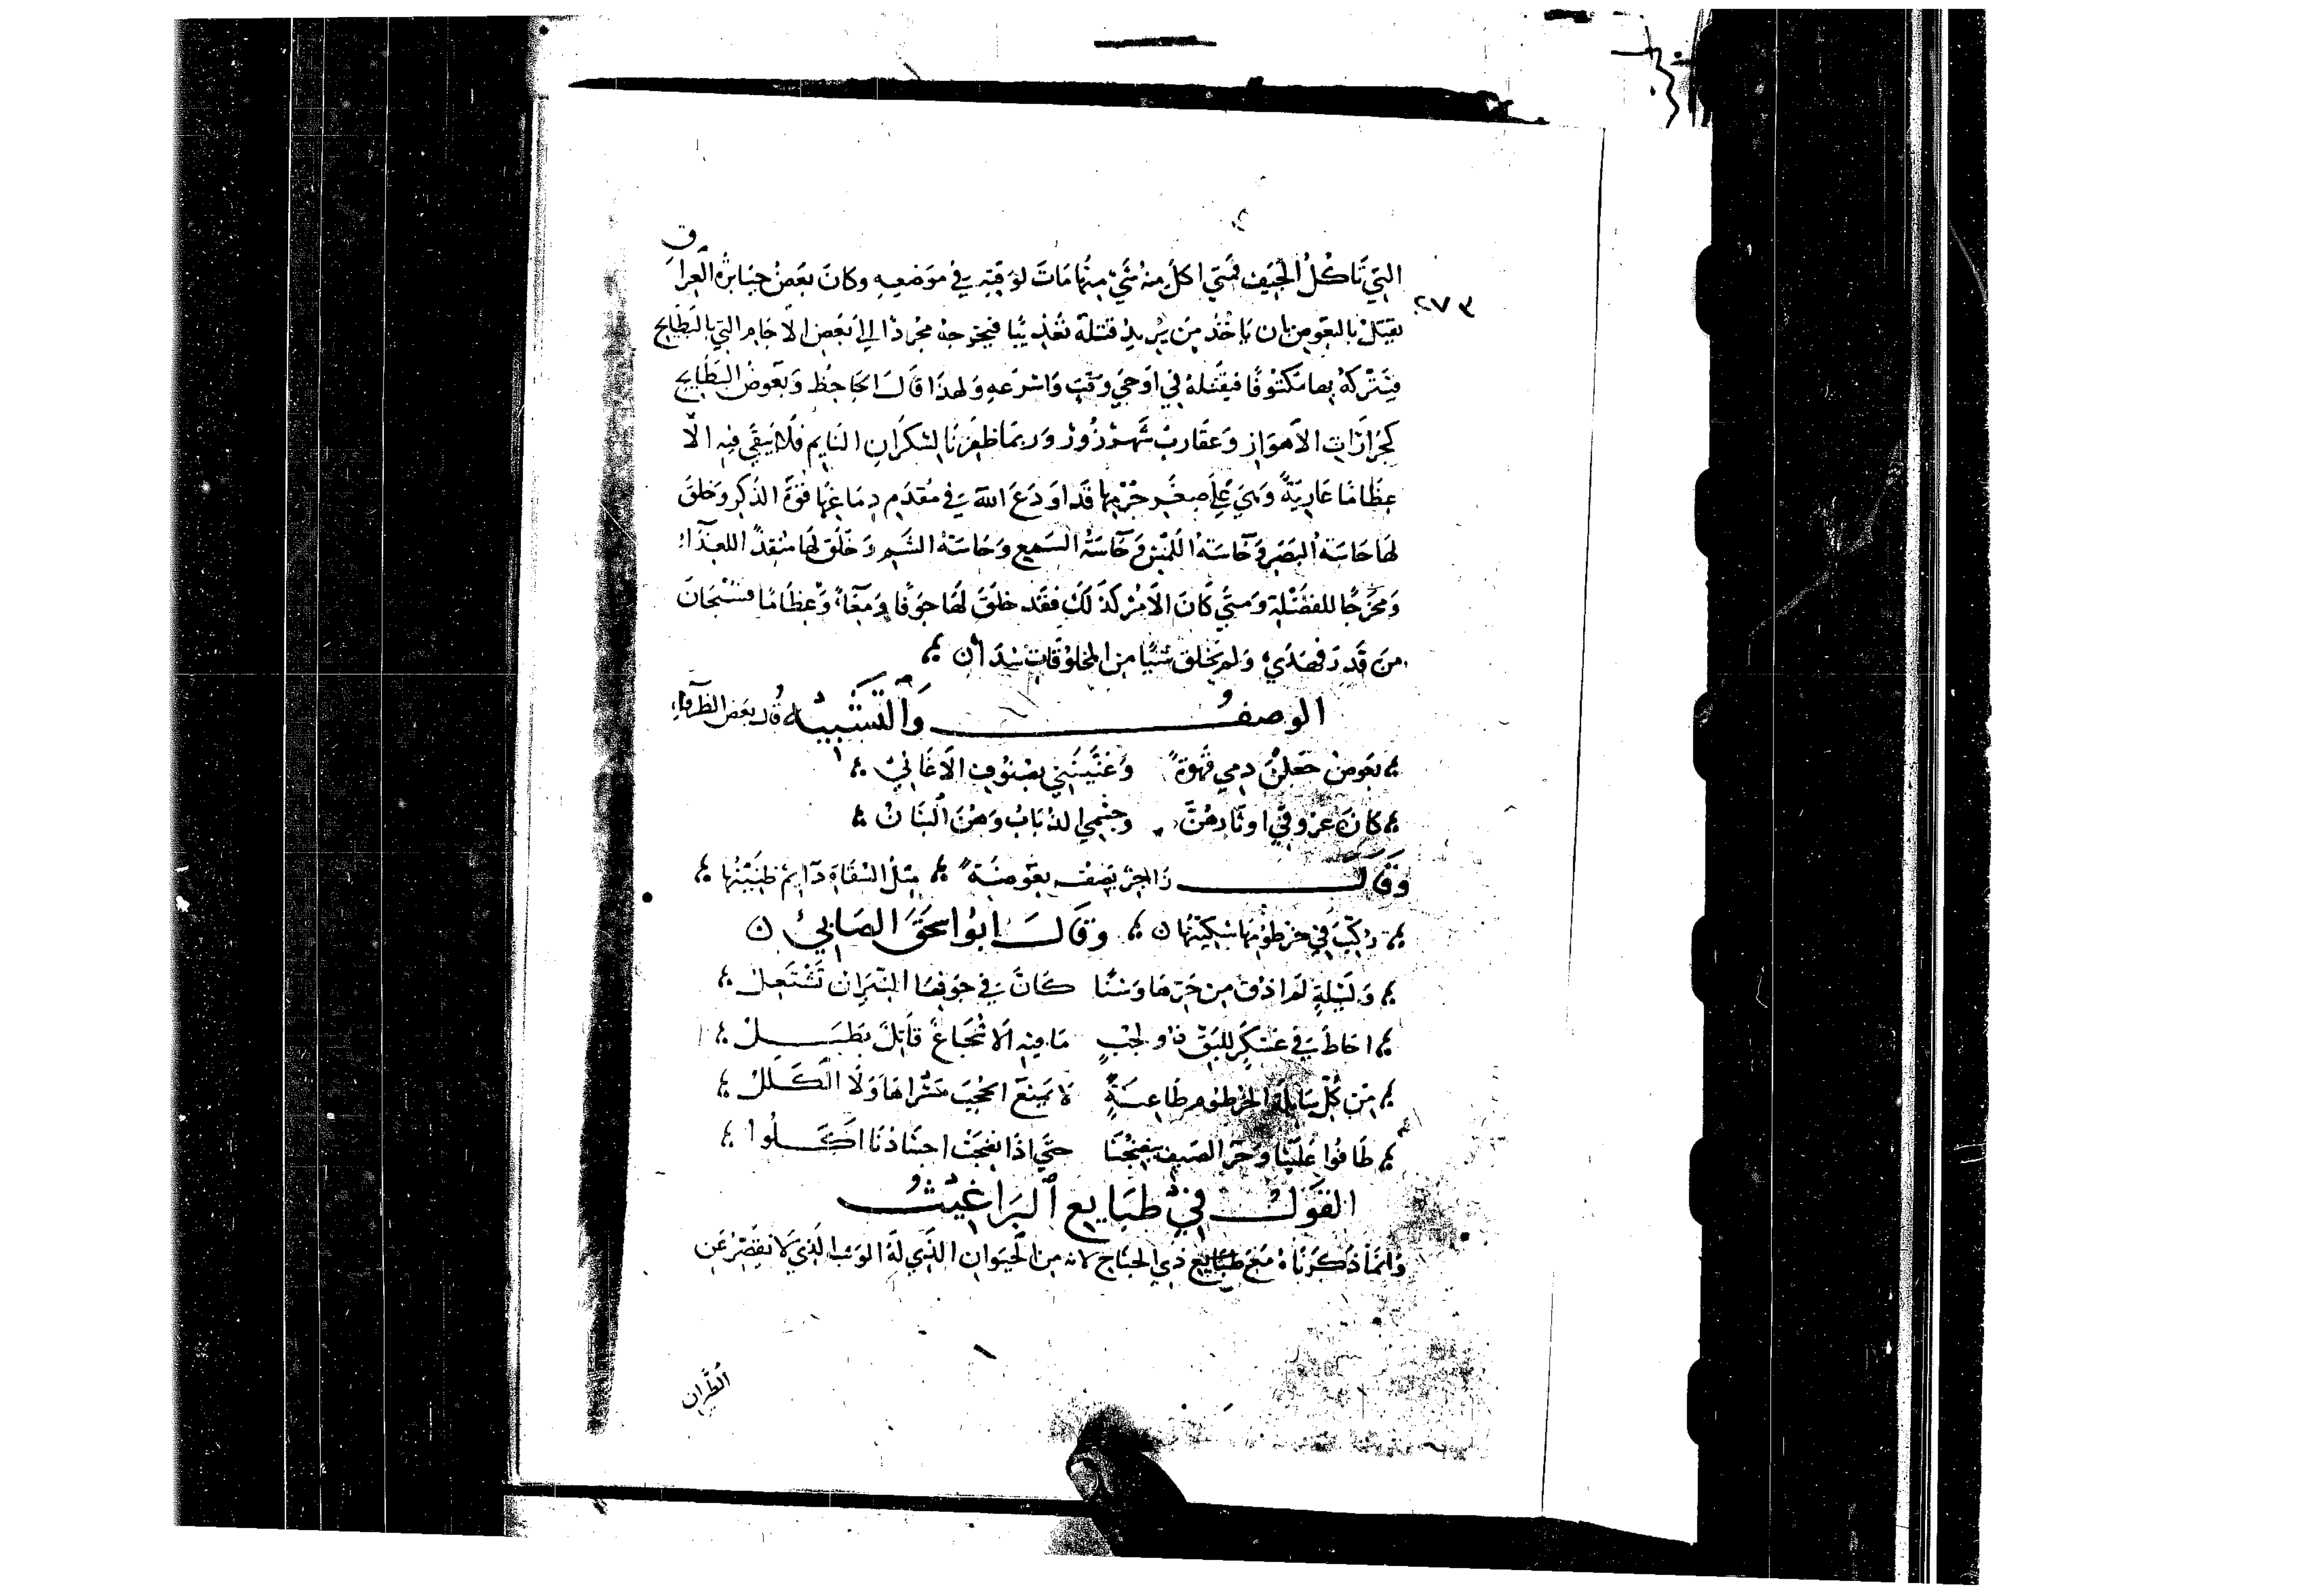 التي تاكل الجيف فمتي اكل منه شي منها مات لوقته في موضعه وكان بعض جبابرة العراق
٢٧٣
يقتل بالبعوض بان ياخذ من يريد قتله تعذيبا فيخرجه مجردا الي بعض الاجام التي بالبطايح
فيتركه بها مكتوفا فيقتله في اوحي وقت واسرعه ولهذا قال الجاحظ وبعوض البطايح
كجرارات الاهواز وعقارب شهرزور وربما ظفرنا بالسكران النايم فلا يبقي فيه الا
عظاما عارية وهي علي صغر جرمها قد اودع الله في مقدم دماغها قوة الذكر وخلق
لها حاسة البصر وحاسة اللمس وحاسة السمع وحاسة الشم وخلق لها منفذا للغذاء
ومخرجا للفضلة ومتي كان الامر كذلك فقد خلق لها جوفا ومعاء وعظاما فسبحان
من قدر فهدي ولم يخلق شيا من المخلوقات سدا
الوصف والتشبيه قال بعض الظرفاء
بعوض جعلن دمي قهوة وغنينني بصنوف الاغاني
كان عروقي اوتارهن وجسمي الرباب وهن القيان
وقال راجز يصف بعوضة مثل السفاة دايم طنينها
ركب في خرطومها سكينها وقال ابو اسحق الصابي
وليلة لم اذق من حرها وسنا كان في جوفها النيران تشتعل
احاط بي عسكر للبق ذو لجب ما فيه الا شجاع قاتل بطل
من كل سايلة الخرطوم طاعنة لا يمنع الحجب مسراها ولا الكلل
طافوا علينا وحر الصيف ينضجنا حتي اذا نضجت اجسادنا اكلوا
القول في طبايع البراغيث
وانما ذكرناه مع طبايع ذي الجناح لانه من الحيوان الذي له الوثب الذي لا يقصر عن
الطيران